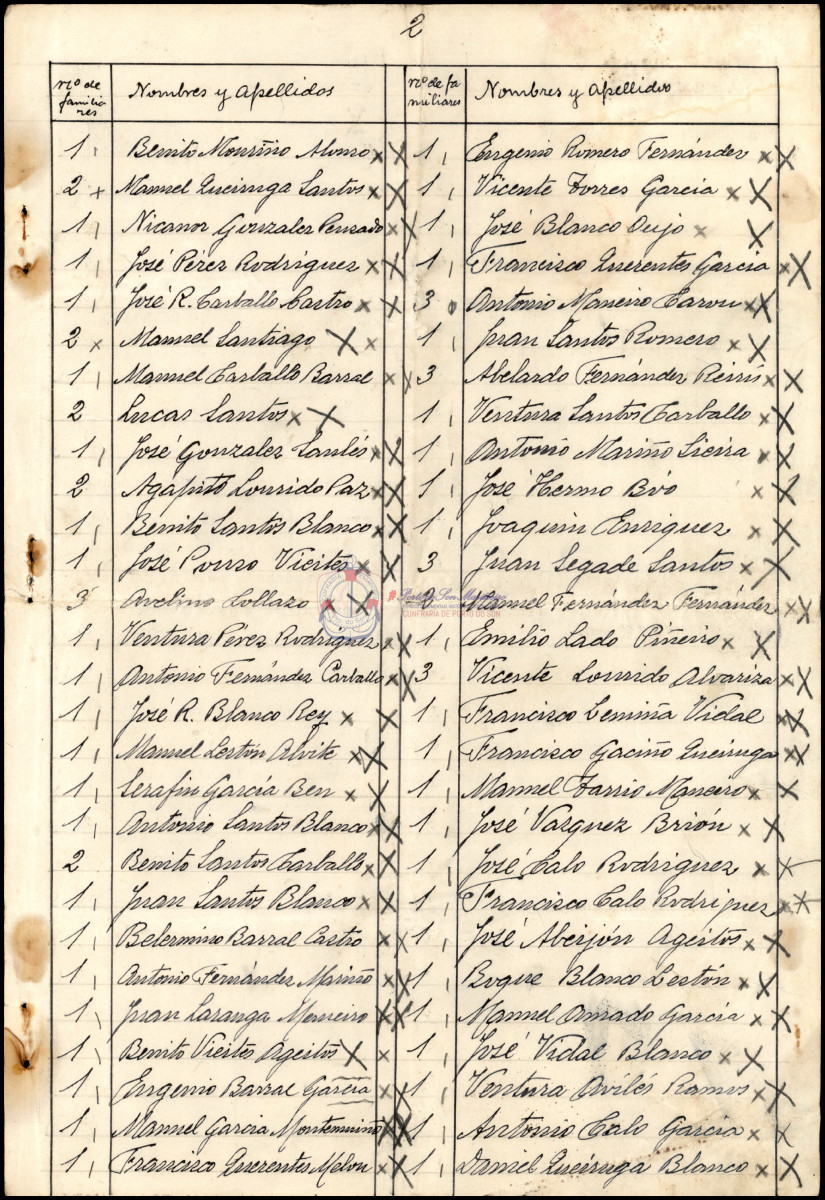 2
nº de familiares
Nombres y Apellidos
1 Benito Mouriño Alonso x X
2 x Manuel Queiruga Santos x X
1 Nicanor Gonzalez Pensado x X
1 José Pérez Rodriguez x X
1 José R. Carballo Castro x X
2 x Manuel Santiago X x
1 Manuel Carballo Barral x X
2 Lucas Santos x X
1 José Gonzalez Saulés x X
2 Agapito Lourido Paz x X
1 Benito Santos Blanco x X
1 José Pouso Vieites x X
3 Avelino Collazo x X
1 Ventura Pérez Rodriguez x X
1 Antonio Fernández Carballo x X
1 José R. Blanco Rey x X
1 Manuel Lestón Alvite x X
1 Serafin García Ben x X
1 Antonio Santos Blanco x X
2 Benito Santos Carballo x X
1 Juan Santos Blanco x X
1 Belermino Barral Castro x X
1 Antonio Fernández Mariño x X
1 Juan Laranga x X
1 Benito Vieites Ageitos X x
1 Eugenio Barral García x X
1 Manuel Garcia x X
1 Francisco Querentes x X
nº de familiares
Nombres y Apellidos
1 Eugenio Romero Fernández x X
1 Vicente Torres Garcia x X
1 José Blanco Oujo x X
1 Francisco Querentes Garcia x X
3 Antonio Maneiro x X
1 Juan Santos Romero x X
3 Abelardo Fernández Reiris x X
1 Ventura Santos Carballo x X
1 Antonio Mariño Sieira x X
1 José Hermo x X
1 Joaquin Enriquez x X
3 Juan Segade Santos x X
Manuel Fernández Fernández x X
1 Emilio Lado Piñeiro x X
3 Vicente Lourido Alvariza x X
1 Francisco Lemiña Vidal x X
1 Francisco Gaciño Queiruga x X
1 Manuel Tarrio Maneiro x X
1 José Vazquez Brión x X
1 José Calo Rodriguez x X
1 Francisco Calo Rodriguez x X
1 José Abeijón Ageitos x X
1 Roque Blanco Lestón x X
1 Manuel Amado García x X
1 José Vidal Blanco x X
1 Ventura Avilés Ramos x X
1 Antonio Calo Garcia x x
1 Daniel Queiruga Blanco x X
CONFRARIA DE PORTO DO SON